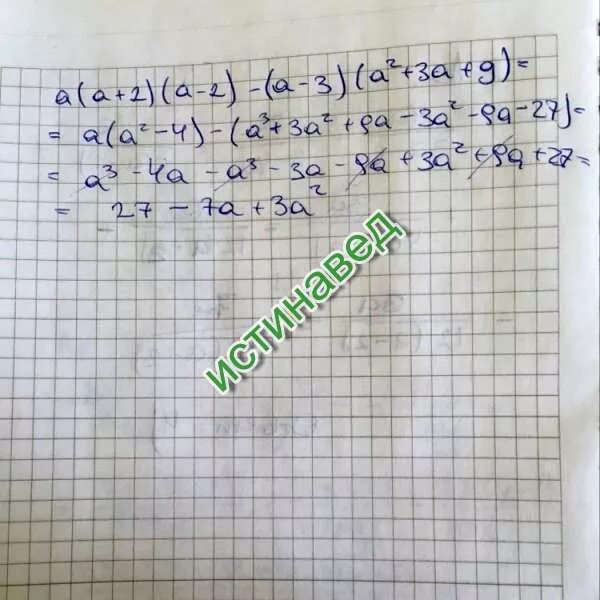 a(a+2)(a-2) - (a-3)(a²+3a+9)=
= a(a²-4) - (a³+3a²+9a-3a²-9a-27)=
= a³ - 4a - a³ - 3a - 9a + 3a² + 9a + 27=
= 27 - 7a + 3a²
истинавед